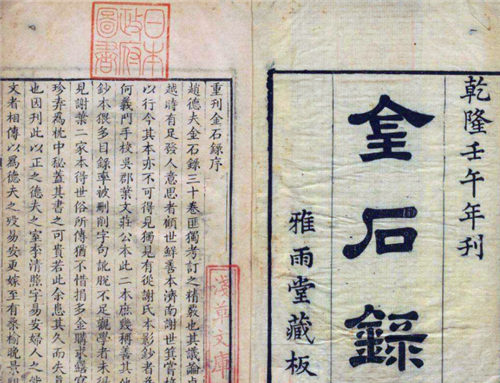 乾隆壬午年刊
金石錄
雅雨堂藏板
日本政府圖書
重刊金石錄序
趙德夫金石錄三十卷匪獨考訂之精覈也其議論卓
越時有足發人意思者顧世鮮善本濟南謝世箕嘗梓
以行今其本亦不可得見獨見有從謝氏本影鈔者
何義門手校吳郡葉文莊公本此二本庶幾稱善其他
鈔本猥多目錄率被刪削字句訛脫不足觀學者未
見謝葉二家本得世俗所傳猶不惜捐多金購求繕寫
珍弆為枕中秘蓋其書之可貴若此余患其久而失真
也因刊此以正之德夫之室李清照字易安婦人之能
文者相傳以為德夫之歿易安更嫁至有桑榆晚景
淺草文庫